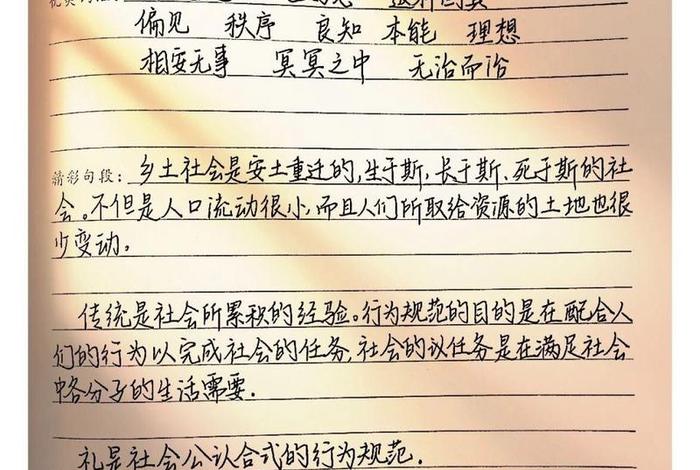 偏见 秩序 良知 本能 理想
相安无事 冥冥之中 无治而治
精彩句段: 乡土社会是安土重迁的,生于斯、长于斯、死于斯的社
会。不但是人口流动很小,而且人们所取给资源的土地也很
少变动。
传统是社会所累积的经验。行为规范的目的是在配合人
们的行为以完成社会的任务,社会的议任务是在满足社会
中各分子的生活需要.
礼是社会公认合式的行为规范.